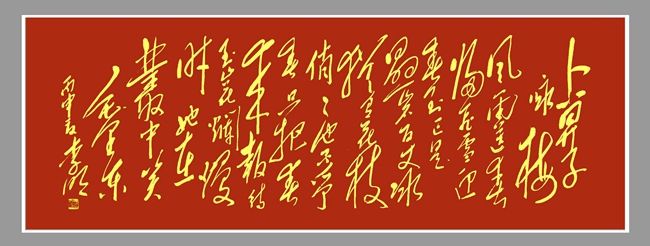 卜算子
咏梅
风雨送春
归飞雪迎
春到已是
悬崖百丈冰
犹有花枝
俏俏也不争
春只把春
来报待
到山花烂漫
时她在
丛中笑
毛泽东